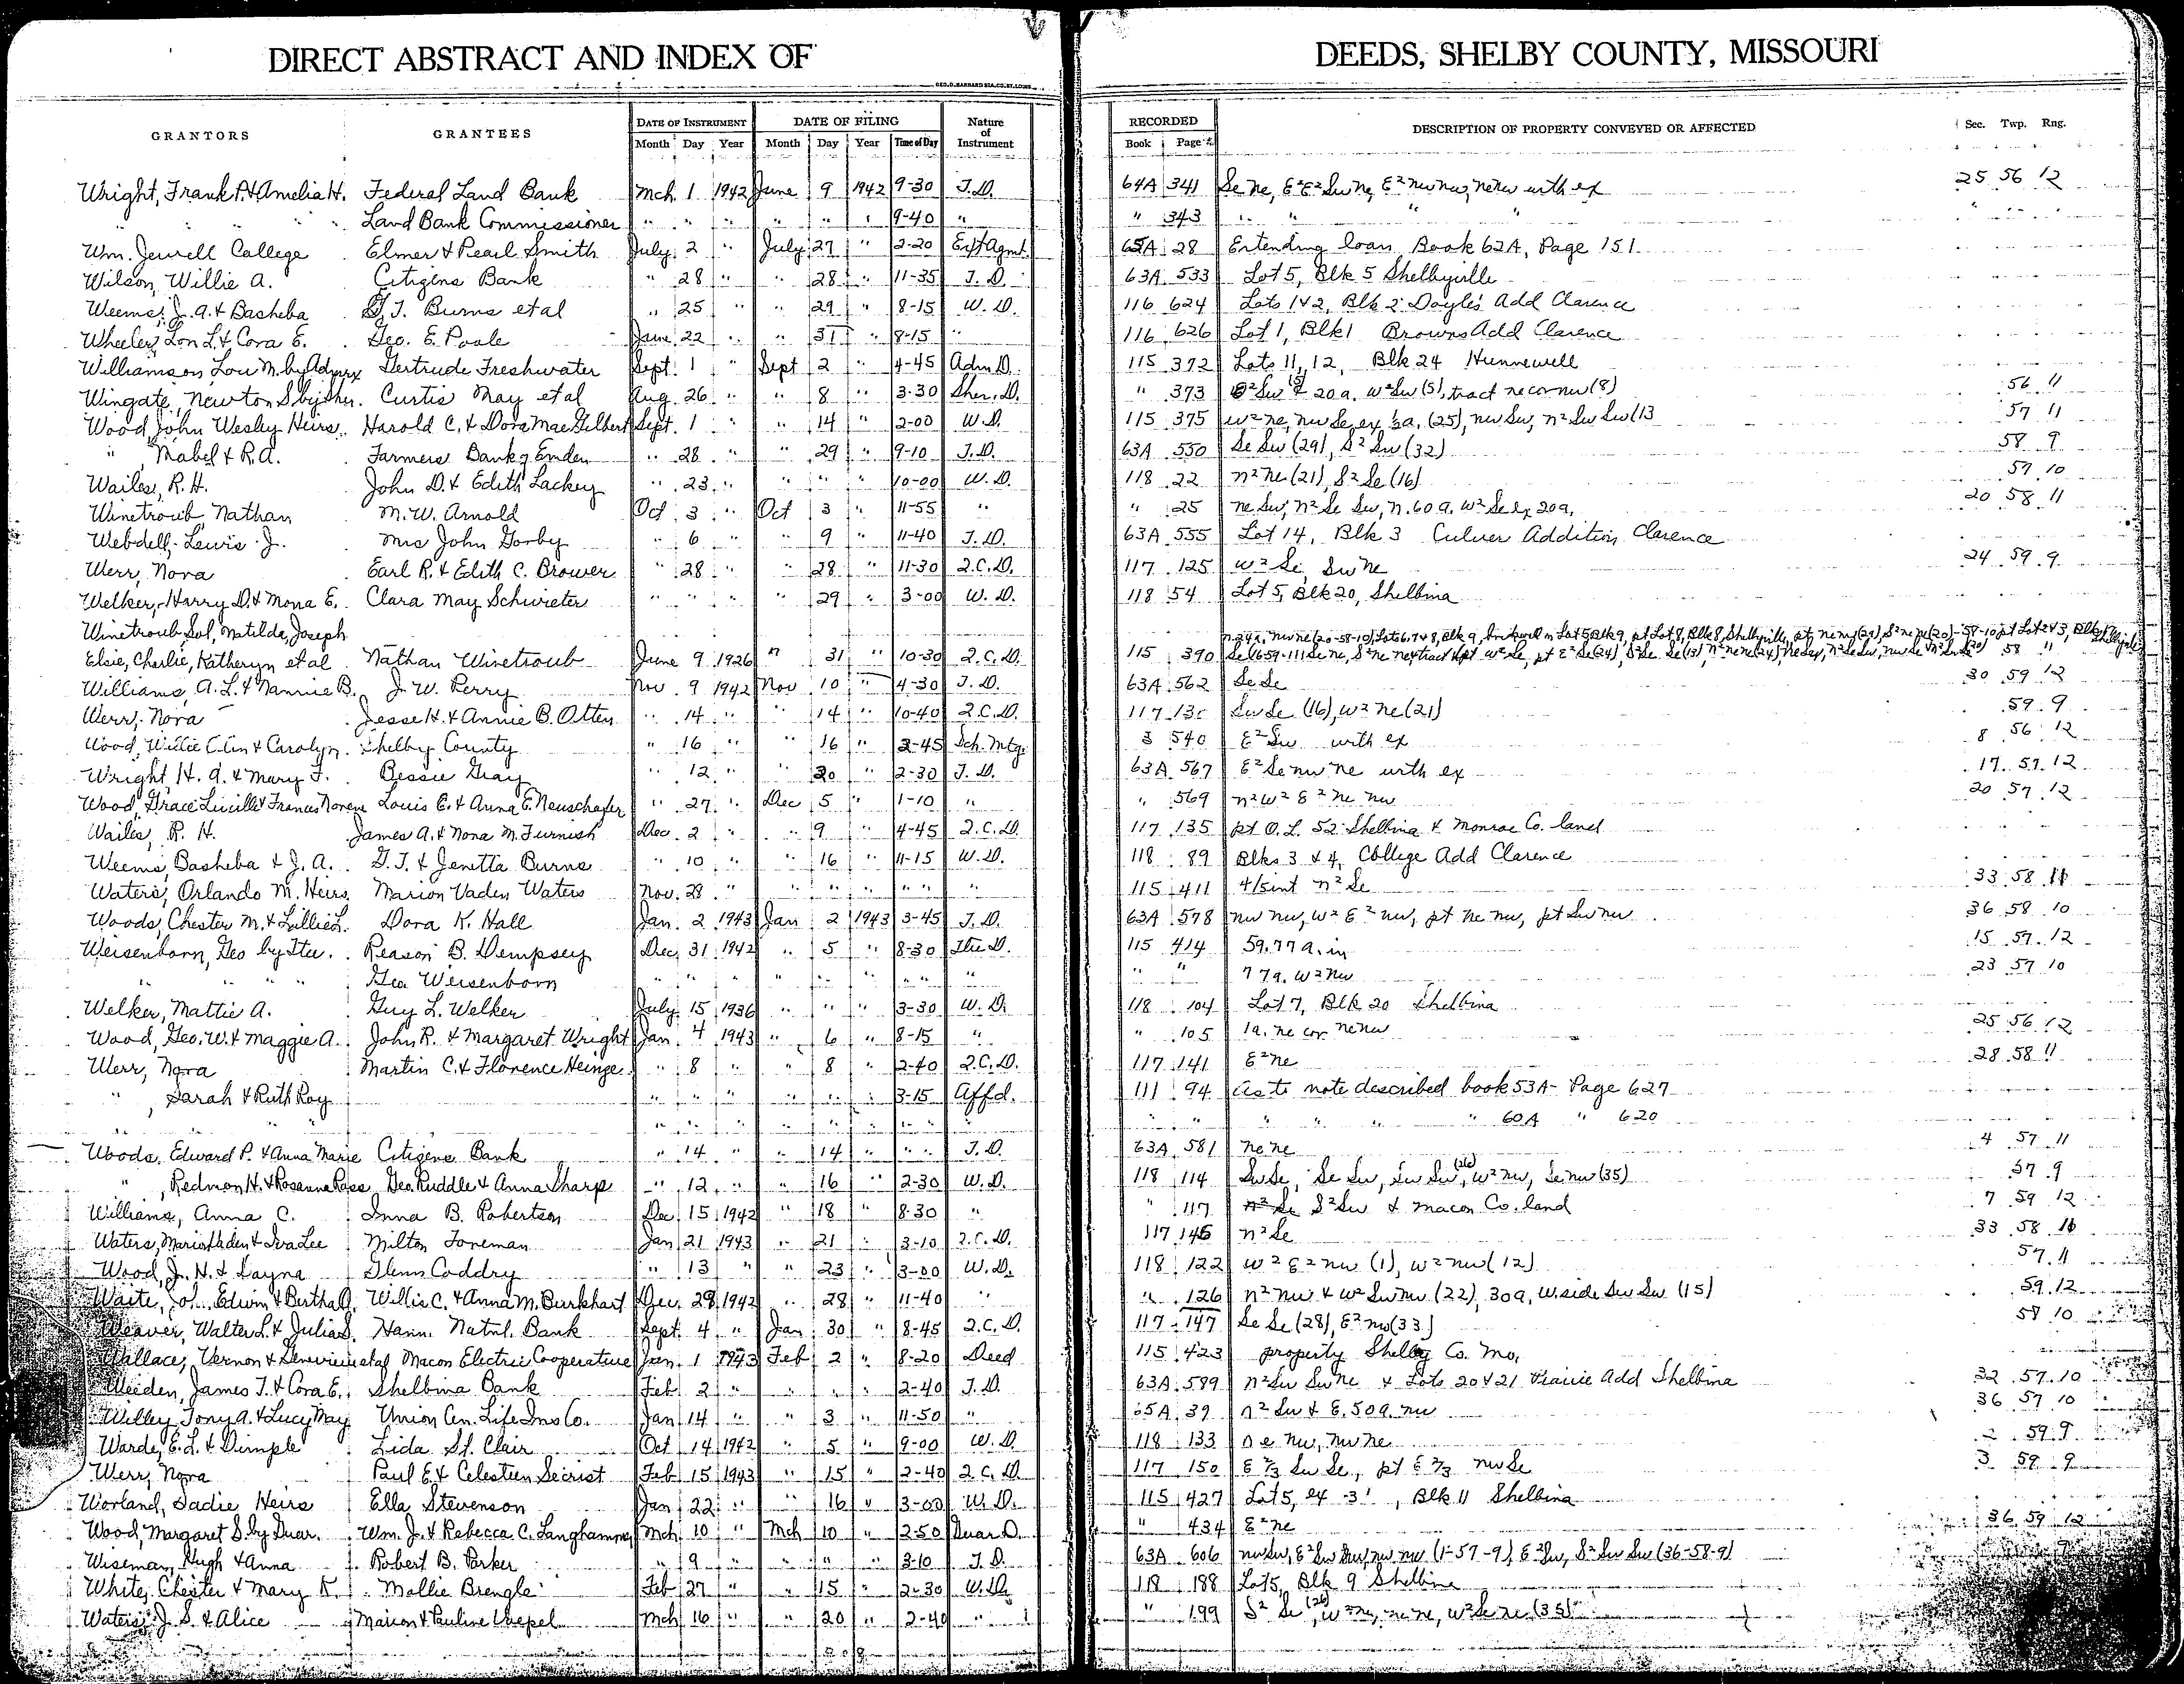 DIRECT ABSTRACT AND INDEX OF DEEDS, SHELBY COUNTY, MISSOURI
GEO. D. BARNARD STA. CO. ST. LOUIS
GRANTORS GRANTEES DATE OF INSTRUMENT DATE OF FILING Nature of Instrument RECORDED DESCRIPTION OF PROPERTY CONVEYED OR AFFECTED Sec. Twp. Rng.
Month Day Year Month Day Year Time of Day Book Page
Wright, Frank P. & Amelia H. Federal Land Bank Mch 1 1942 June 9 1942 9-30 T.D. 64A 341 Se ne, E²E² Sw ne, E² nw nw, ne nw with ex 25 56 12
" " " Land Bank Commissioner " " " " " " 9-40 " " 343 " " " " " " "
Wm. Jewell College Elmer & Pearl Smith July 2 " July 27 " 2-20 Ext Agmt. 65A 28 Extending loan Book 62A, Page 151
Wilson, Willie A. Citizens Bank " 28 " " 28 " 11-35 T.D. 63A 533 Lot 5, Blk 5 Shelbyville
Weems, J. A. & Basheba G.T. Burns et al " 25 " " 29 " 8-15 W.D. 116 624 Lots 1 & 2, Blk 2 Doyle's Add Clarence
Wheeler, Lon L. & Cora E. Geo. E. Poole June 22 " " 31 " 8-15 " 116 626 Lot 1, Blk 1 Browns Add Clarence
Williamson, Lou M. by Admrx Gertrude Freshwater Sept. 1 " Sept 2 " 4-45 Adm D. 115 372 Lots 11, 12, Blk 24 Hunnewell
Wingate, Newton S. by Sher. Curtis May et al Aug. 26 " " 8 " 3-30 Sher. D. " 373 20a. w² Sw (5), tract ne cor nw (8) 56 11
Wood, John Wesley Heirs Harold C. & Dora Mae Gilbert Sept. 1 " " 14 " 2-00 W.D. 115 375 w² ne, nw Se ex ½a. (25), nw Sw, n² Sw Sw (13 57 11
" , Mabel & R.A. Farmers Bank of Emden " 28 " " 29 " 9-10 T.D. 63A 550 Se Sw (29), S² Sw (32) 58 9
Wailes, R.H. John D. & Edith Lackey " 23 " " " " 10-00 W.D. 118 22 n² ne (21), S² Se (16) 57 10
Winetroub Nathan M.W. Arnold Oct 3 " Oct 3 " 11-55 " " 25 ne Sw, n² Se Sw, n. 60a. w² Se ex 20a. 20 58 11
Webdell, Lewis J. Mrs John Gorby " 6 " " 9 " 11-40 T.D. 63A 555 Lot 14, Blk 3 Culver Addition Clarence
Werr, Nora Earl R. & Edith C. Brower " 28 " " 28 " 11-30 Q.C.D. 117 125 w² Se, Sw ne 24 59 9
Welker, Harry D. & Mona E. Clara May Schwieter " " " " 29 " 3-00 W.D. 118 54 Lot 5, Blk 20, Shelbina
Winetroub Sol, Matilda, Joseph
Elsie, Charlie, Katheryn et al Nathan Winetroub June 9 1926 " 31 " 10-30 Q.C.D. 115 390 58 "
Williams, A.L. & Nannie B. J.W. Perry Nov. 9 1942 Nov 10 " 4-30 T.D. 63A 562 Se Se 30 59 12
Werr, Nora Jesse H. & Annie B. Otten " 14 " " 14 " 10-40 Q.C.D. 117 Sw Se (16), w² ne (21) 59 9
Wood, Willie & Carolyn Shelby County " 16 " " 16 " 2-45 Sch. Mtg. 3 540 E² Sw with ex 8 56 12
Wright, H.A. & Mary F. Bessie Gray " 12 " " 20 " 2-30 T.D. 63A 567 E² Se nw ne with ex 17 57 12
Wood, Grace Lucille & Frances Norene Louis E. & Anna E. Neuschafer " 27 " Dec 5 " 1-10 " " 569 n² w² E² ne nw 20 57 12
Wailes, R.H. James A. & Nona M. Furnish Dec. 2 " " 9 " 4-45 Q.C.D. 117 135 pt O.L. 52 Shelbina & Monroe Co. land
Weems, Basheba & J.A. G.T. & Jenetta Burns " 10 " " 16 " 11-15 W.D. 118 89 Blks 3 & 4, College Add Clarence
Waters, Orlando M. Heirs Marion Vaden Waters Nov. 28 " " " " " " 115 411 4/5 int n² Se 33 58 11
Woods, Chester M. & Lillie L. Dora K. Hall Jan. 2 1943 Jan 2 1943 3-45 T.D. 63A 578 nw nw, w² E² nw, pt ne nw, pt Sw nw 36 58 10
Weisenborn, Geo by Tru. Reason B. Dempsey Dec. 31 1942 " 5 " 8-30 Tru D. 115 414 59.77a. in 15 57 12
" " " Geo Weisenborn " " " " " " " " " " 77a. w² nw 23 57 10
Welker, Mattie A. Guy L. Welker July 15 1936 " " " 3-30 W.D. 118 104 Lot 7, Blk 20 Shelbina
Wood, Geo. W. & Maggie A. John R. & Margaret Wright Jan. 4 1943 " 6 " 8-15 " " 105 1a. ne cor ne nw 25 56 12
Werr, Nora Martin C. & Florence Heinze " 8 " " 8 " 2-40 Q.C.D. 117 141 E² ne 28 58 11
" , Sarah & Ruth Roy " " " " " " 3-15 Affd. 111 94 As to note described book 53A - Page 627
" " " " " " " " " " " " " 60A " 620
Woods, Edward P. & Anna Marie Citizens Bank " 14 " " 14 " " T.D. 63A 581 ne ne 4 57 11
" , Redmon H. & Rosanna Geo. Ruddle & Anna Sharp " 12 " " 16 " 2-30 W.D. 118 114 Sw Se, Se Sw, Sw Sw (26), w² nw, Se nw (35) 57 9
Williams, Anna C. Inna B. Robertson Dec. 15 1942 " 18 " 8-30 " " 117 S² Sw & Macon Co. land 7 59 12
Waters, Marion Vaden & Iva Lee Milton Foreman Jan 21 1943 " 21 " 3-10 Q.C.D. 117 145 n² Se 33 58 11
Wood, J.H. & Dayna Glenn Coddry " 13 " " 23 " 3-00 W.D. 118 122 w² E² nw (1), w² nw (12) 57 11
Waite, Edwin & Bertha Willis C. & Anna M. Burkhart Dec. 29 1942 " 28 " 11-40 " " 126 n² nw & w² Sw nw (22), 30a. W. side Sw Sw (15) 59 12
Weaver, Walter L. & Julia S. Hann. Natnl. Bank Sept. 4 " Jan 30 " 8-45 Q.C.D. 117 147 Se Se (28), E² nw (33) 58 10
Wallace, Vernon & Genevieve et al Macon Electric Cooperative Jan. 1 1943 Feb 2 " 8-20 Deed 115 423 property Shelby Co. Mo.
Weiden, James T. & Cora E. Shelbina Bank Feb 2 " " " " 2-40 T.D. 63A 589 n² Sw Sw ne & Lots 20 & 21 Prairie Add Shelbina 32 57 10
Willey, Tony A. & Lucy May Union Cen. Life Ins Co. Jan 14 " " 3 " 11-50 " 65A 39 n² Sw & E. 50a. nw 36 57 10
Warde, E.L. & Dimple Lida St. Clair Oct 14 1942 " 5 " 9-00 W.D. 118 133 ne nw, nw ne 59 9
Werr, Nora Paul E. & Celestien Secrist Feb 15 1943 " 15 " 2-40 Q.C.D. 117 150 E ⅔ Sw Se, pt E ⅔ nw Se 3 59 9
Worland, Sadie Heirs Ella Stevenson Jan 22 " " 16 " 3-00 W.D. 115 427 Lot 5, ex 3', Blk 11 Shelbina
Wood, Margaret S. by Guar. Wm. J. & Rebecca C. Langhammer Mch 10 " Mch 10 " 2-50 Guar D. " 434 E² ne 36 59 12
Wiseman, Hugh & Anna Robert B. Parker " 9 " " " " 3-10 T.D. 63A 606 nw Sw, E² Sw nw, nw nw (1-57-9), E² Sw, S² Sw Sw (36-58-9)
White, Chester & Mary K. Mollie Brengle Feb 27 " " 15 " 2-30 W.D. 118 188 Lot 5, Blk 9 Shelbina
Waters, J.S. & Alice Marion & Pauline Mch 16 " " 20 " 2-40 " " 199 S² Se (26), w² ne, ne ne, w² Se ne (35)